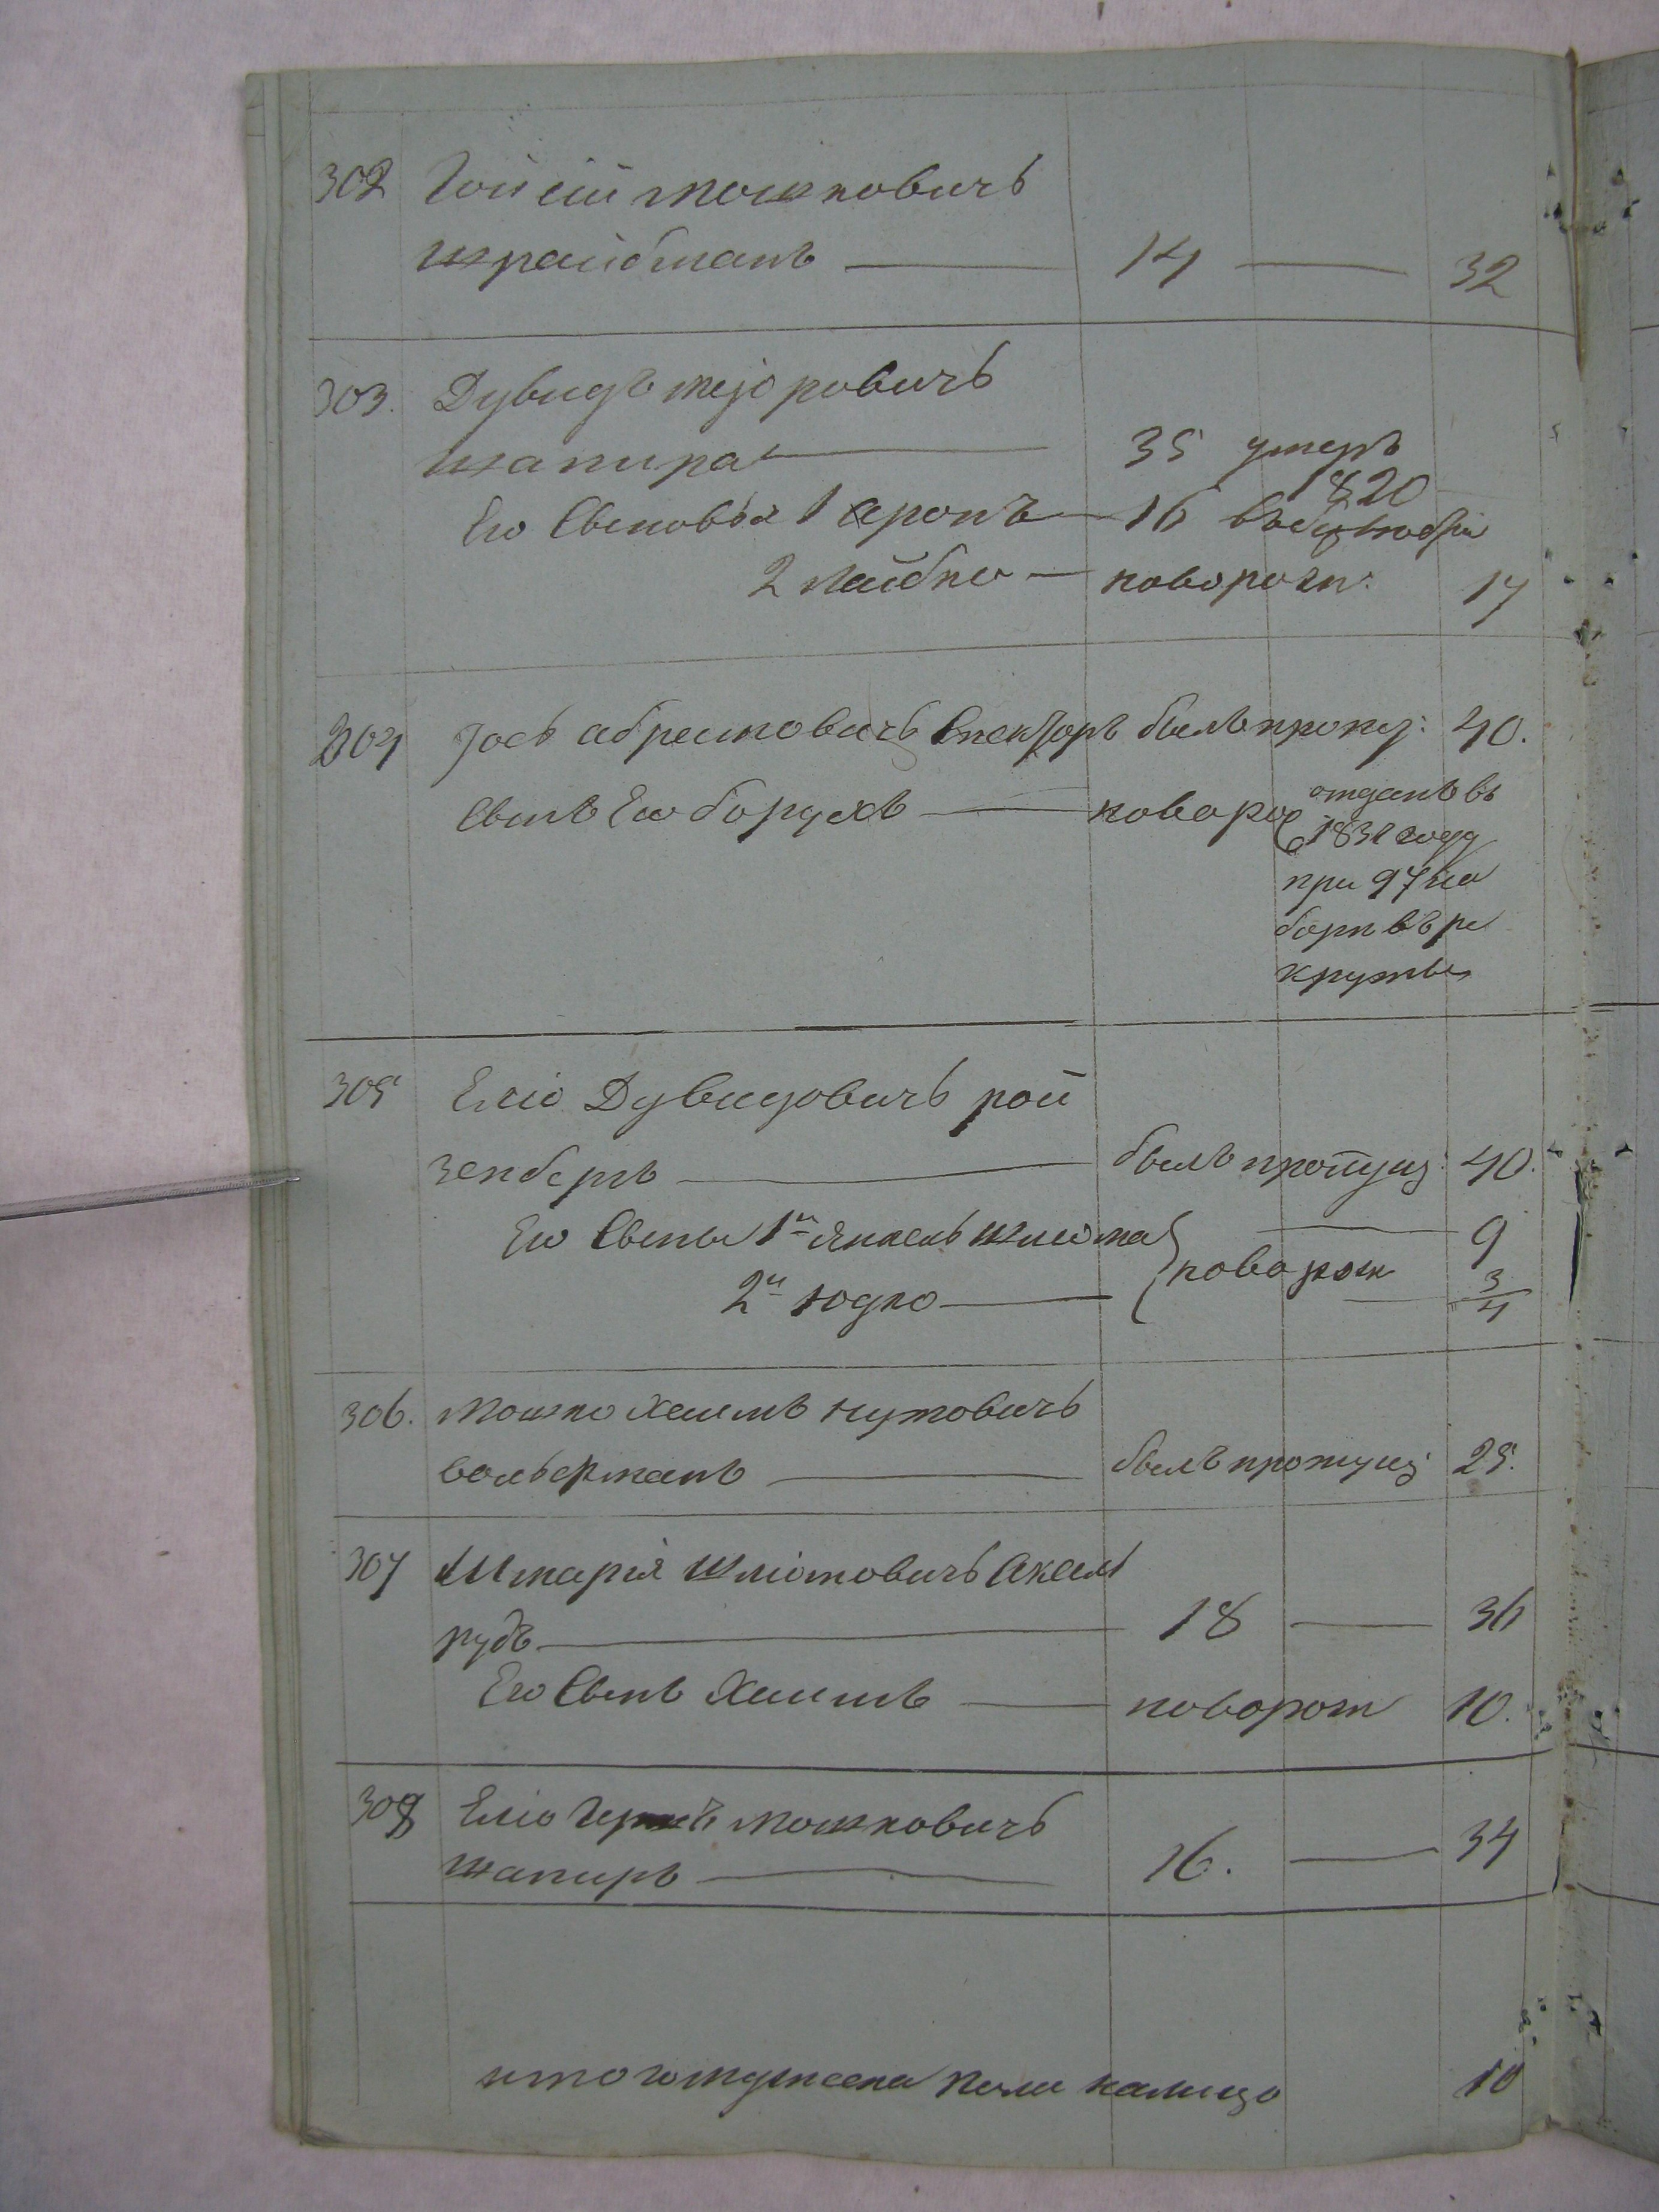 302 мошковичъ
шрайбманъ — 14 — 32
303. Дувидъ меіоровичъ
шапира — 35 умеръ
1820
Его Сыновья 1 аронъ — 16
2 лейбко — новорож: 17
304 Іось абрамовичъ Спекторъ былъ пропу: 40.
Сынъ Его борухъ — новорож отданъ въ
1831 году
при 97 на
борѣ въ ре
круты
305 Еліо Дувидовичъ рой
зенбергъ — былъ пропущ: 40.
Его Сыны 1й янкель шліома — 9
2й юдко — новорож — 3/4
306. Мошко Хаимъ нутовичъ
вольфманъ — былъ пропущ: 25.
307 Шмарія шліомовичъ Аксель
рудъ — 18 — 36
Его Сынъ Хаимъ — новорож 10.
308 Еліо Гершъ мошковичъ
шапиръ — 16. — 34
итого мужеска пола налицо 10